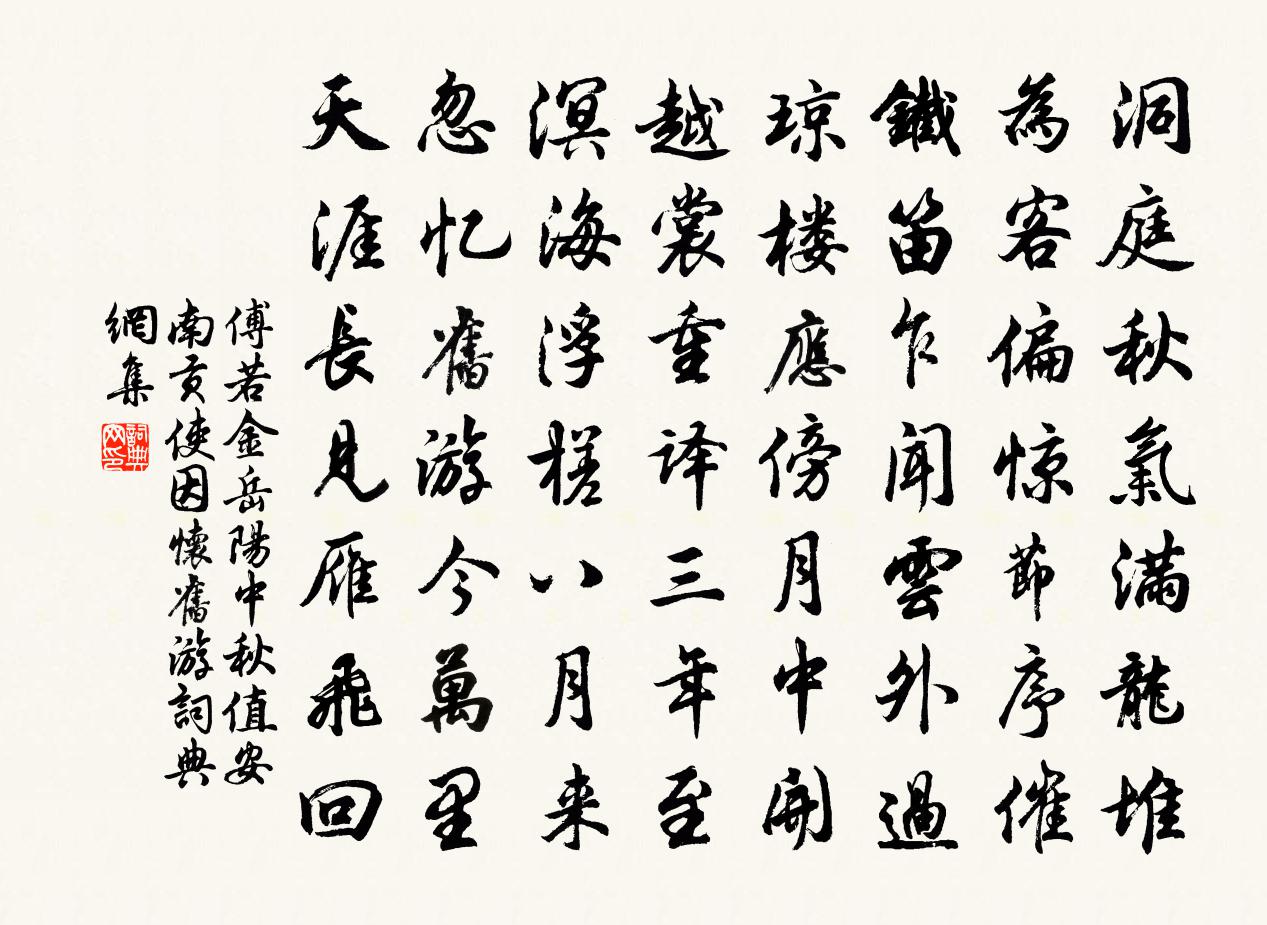 洞庭秋氣满龍堆
為客偏惊節序催
鐵笛乍聞雲外過
琼楼應傍月中開
越裳重译三年至
溟海浮槎八月来
忽忆舊游今萬里
天涯長見雁飛回
傅若金岳陽中秋值安
南贡使因懷舊游詞典
網集
詞典
网印